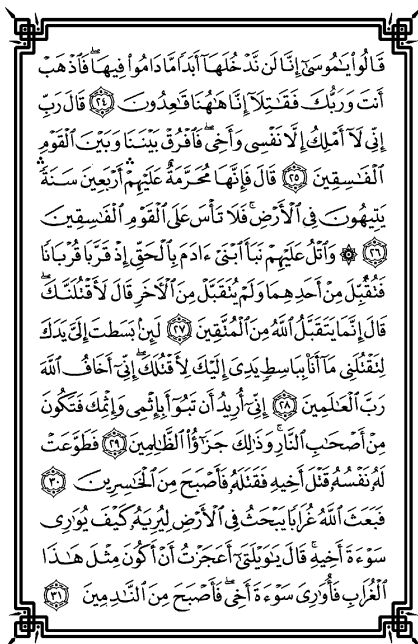 قَالُوا۟ يَـٰمُوسَىٰٓ إِنَّا لَن نَّدْخُلَهَآ أَبَدًا مَّا دَامُوا۟ فِيهَا ۖ فَٱذْهَبْ
أَنتَ وَرَبُّكَ فَقَـٰتِلَآ إِنَّا هَـٰهُنَا قَـٰعِدُونَ ٢٤ قَالَ رَبِّ
إِنِّى لَآ أَمْلِكُ إِلَّا نَفْسِى وَأَخِى ۖ فَٱفْرُقْ بَيْنَنَا وَبَيْنَ ٱلْقَوْمِ
ٱلْفَـٰسِقِينَ ٢٥ قَالَ فَإِنَّهَا مُحَرَّمَةٌ ۛ عَلَيْهِمْ ۛ أَرْبَعِينَ سَنَةً ۛ
يَتِيهُونَ فِى ٱلْأَرْضِ ۚ فَلَا تَأْسَ عَلَى ٱلْقَوْمِ ٱلْفَـٰسِقِينَ
٢٦ ۞ وَٱتْلُ عَلَيْهِمْ نَبَأَ ٱبْنَىْ ءَادَمَ بِٱلْحَقِّ إِذْ قَرَّبَا قُرْبَانًا
فَتُقُبِّلَ مِنْ أَحَدِهِمَا وَلَمْ يُتَقَبَّلْ مِنَ ٱلْـَٔاخَرِ قَالَ لَأَقْتُلَنَّكَ ۖ
قَالَ إِنَّمَا يَتَقَبَّلُ ٱللَّهُ مِنَ ٱلْمُتَّقِينَ ٢٧ لَئِنۢ بَسَطتَ إِلَىَّ يَدَكَ
لِتَقْتُلَنِى مَآ أَنَا۠ بِبَاسِطٍ يَدِىَ إِلَيْكَ لِأَقْتُلَكَ ۖ إِنِّىٓ أَخَافُ ٱللَّهَ
رَبَّ ٱلْعَـٰلَمِينَ ٢٨ إِنِّىٓ أُرِيدُ أَن تَبُوٓأَ بِإِثْمِى وَإِثْمِكَ فَتَكُونَ
مِنْ أَصْحَـٰبِ ٱلنَّارِ ۚ وَذَٰلِكَ جَزَٰٓؤُا۟ ٱلظَّـٰلِمِينَ ٢٩ فَطَوَّعَتْ
لَهُۥ نَفْسُهُۥ قَتْلَ أَخِيهِ فَقَتَلَهُۥ فَأَصْبَحَ مِنَ ٱلْخَـٰسِرِينَ ٣٠
فَبَعَثَ ٱللَّهُ غُرَابًا يَبْحَثُ فِى ٱلْأَرْضِ لِيُرِيَهُۥ كَيْفَ يُوَٰرِى
سَوْءَةَ أَخِيهِ ۚ قَالَ يَـٰوَيْلَتَىٰٓ أَعَجَزْتُ أَنْ أَكُونَ مِثْلَ هَـٰذَا
ٱلْغُرَابِ فَأُوَٰرِىَ سَوْءَةَ أَخِى ۖ فَأَصْبَحَ مِنَ ٱلنَّـٰدِمِينَ ٣١